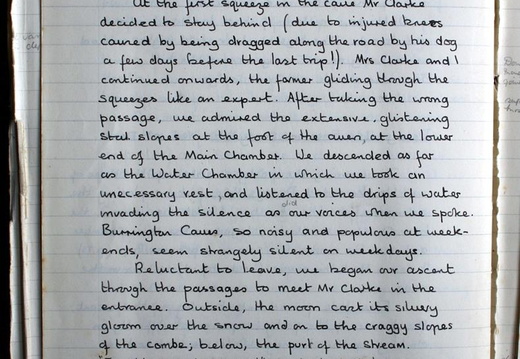 At the first squeeze in the cave Mr Clarke
decided to stay behind (due to injured knees
caused by being dragged along the road by his dog
a few days before the last trip!). Mrs Clarke and I
continued onwards, the former gliding through the
squeezes like an expert. After taking the wrong
passage, we admired the extensive, glistening
stal slopes at the foot of the aven, at the lower
end of the Main Chamber. We descended as far
as the Water Chamber in which we took an
unecessary rest, and listened to the drips of water
did
invading the silence as our voices when we spoke.
Burrington Caves, so noisy and populous at week-
ends, seem strangely silent on weekdays.
Reluctant to leave, we began our ascent
through the passages to meet Mr Clarke in the
entrance. Outside, the moon cast its silvery
gloom over the snow and on to the craggy slopes
of the combe; below, the purl of the stream.